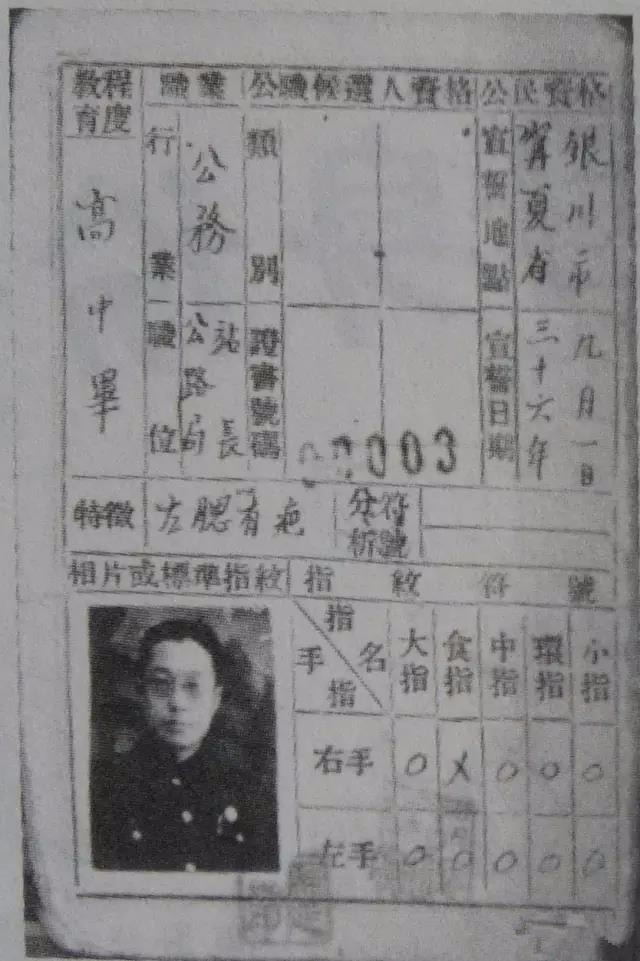 教育程度
職業
公職候選人資格
公民資格
高中畢
行業
公務
類別
宣誓地點
寧夏省
銀川市
職位
公路局
站長
證書號碼
00003
宣誓日期
三十六年
九月一日
特徵
左腮有疤
分析符號
相片或標準指紋
指紋符號
指名
手指
大指
食指
中指
環指
小指
右手 O X O O O
左手 O O O O O